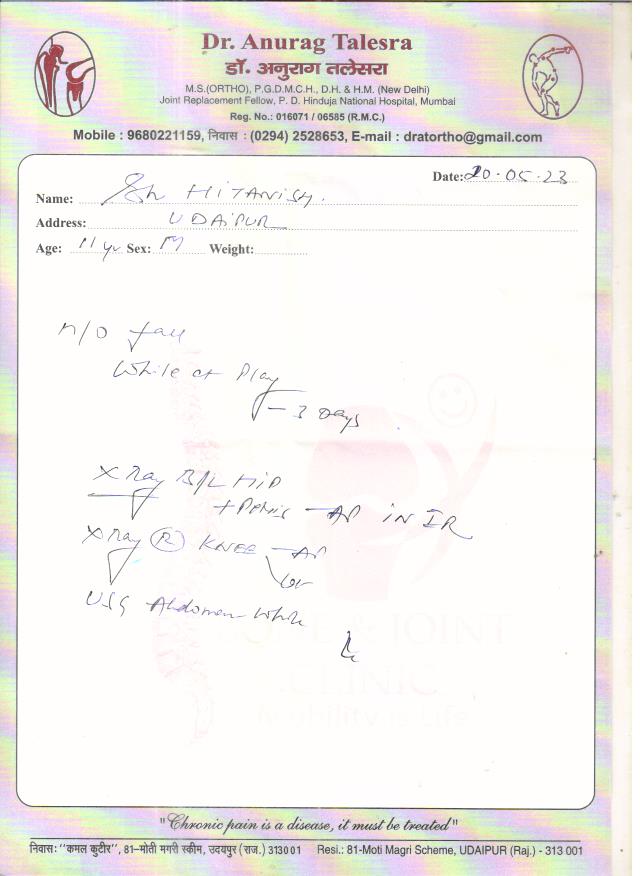 Dr. Anurag Talesra
डॉ. अनुराग तलेसरा
M.S.(ORTHO), P.G.D.M.C.H., D.H. & H.M. (New Delhi)
Joint Replacement Fellow, P. D. Hinduja National Hospital, Mumbai
Reg. No.: 016071 / 06585 (R.M.C.)
Mobile : 9680221159, निवास : (0294) 2528653, E-mail : dratortho@gmail.com
Date: 20.05.23
Name: HITANISH.
Address: UDAIPUR
Age: 11 yr Sex: M Weight:
H/O fall
While at Play
- 3 Days
X Ray B/L HIP
+ Pelvis - AP in IR
X Ray (R) KNEE - AP
Lat
USG Abdomen Whole
BONE & JOINT
CLINIC
Mobility is Life
"Chronic pain is a disease, it must be treated"
निवास: "कमल कुटीर", 81-मोती मगरी स्कीम, उदयपुर (राज.) 313001 Resi.: 81-Moti Magri Scheme, UDAIPUR (Raj.) - 313 001